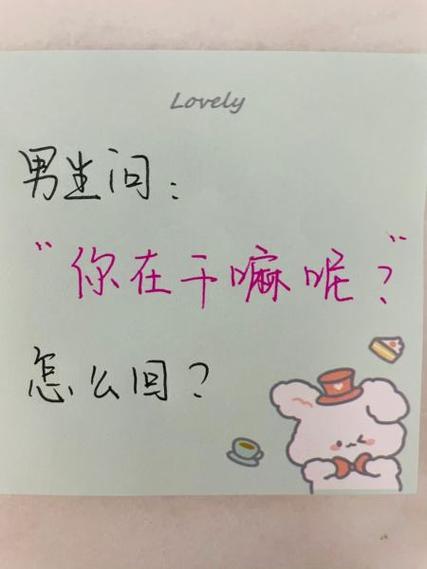 Lovely
男生问：
"你在干嘛呢？"
怎么回？